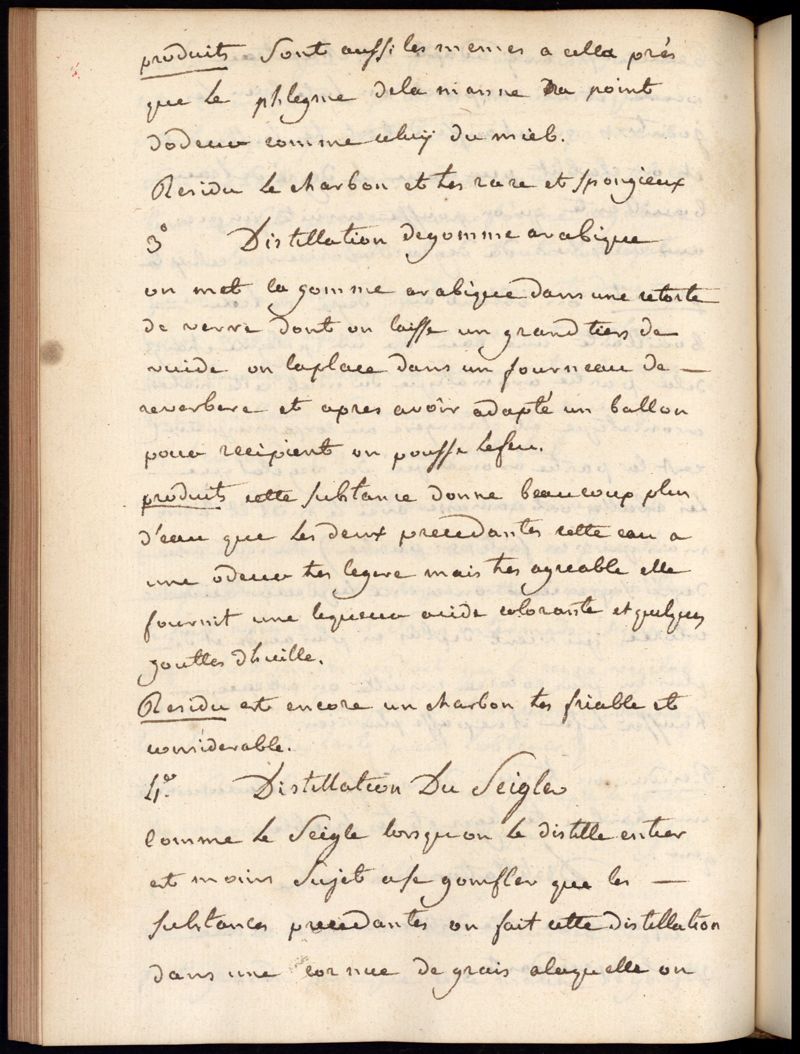 produits sont aussi les memes a cella prés
que le phlegme dela manne na point
dodeur comme celuy du miel.
Residu le charbon et tres rare et spongieux
3° Distillation degomme arabique
on met la gomme arabique dans une retorte
de verre dont on laisse un grand tiers de
vuide on laplace dans un fourneau de —
reverbere et apres avoir adapté un ballon
pour recipient on pousse lefeu.
produits cette substance donne beaucoup plus
d'eau que les deux precedantes cette eau a
une odeur tres legere mais tres agreable elle
fournit une liqueur acide colorante et quelques
gouttes dhuille.
Residu est encore un charbon tres friable et
considerable.
4.° Distillation Du Seigle
comme le Seigle lorsquon le distille entier
est moins sujet ase gomfler que les —
substances precedantes on fait cette distillation
dans une cornue de grais alaquelle on